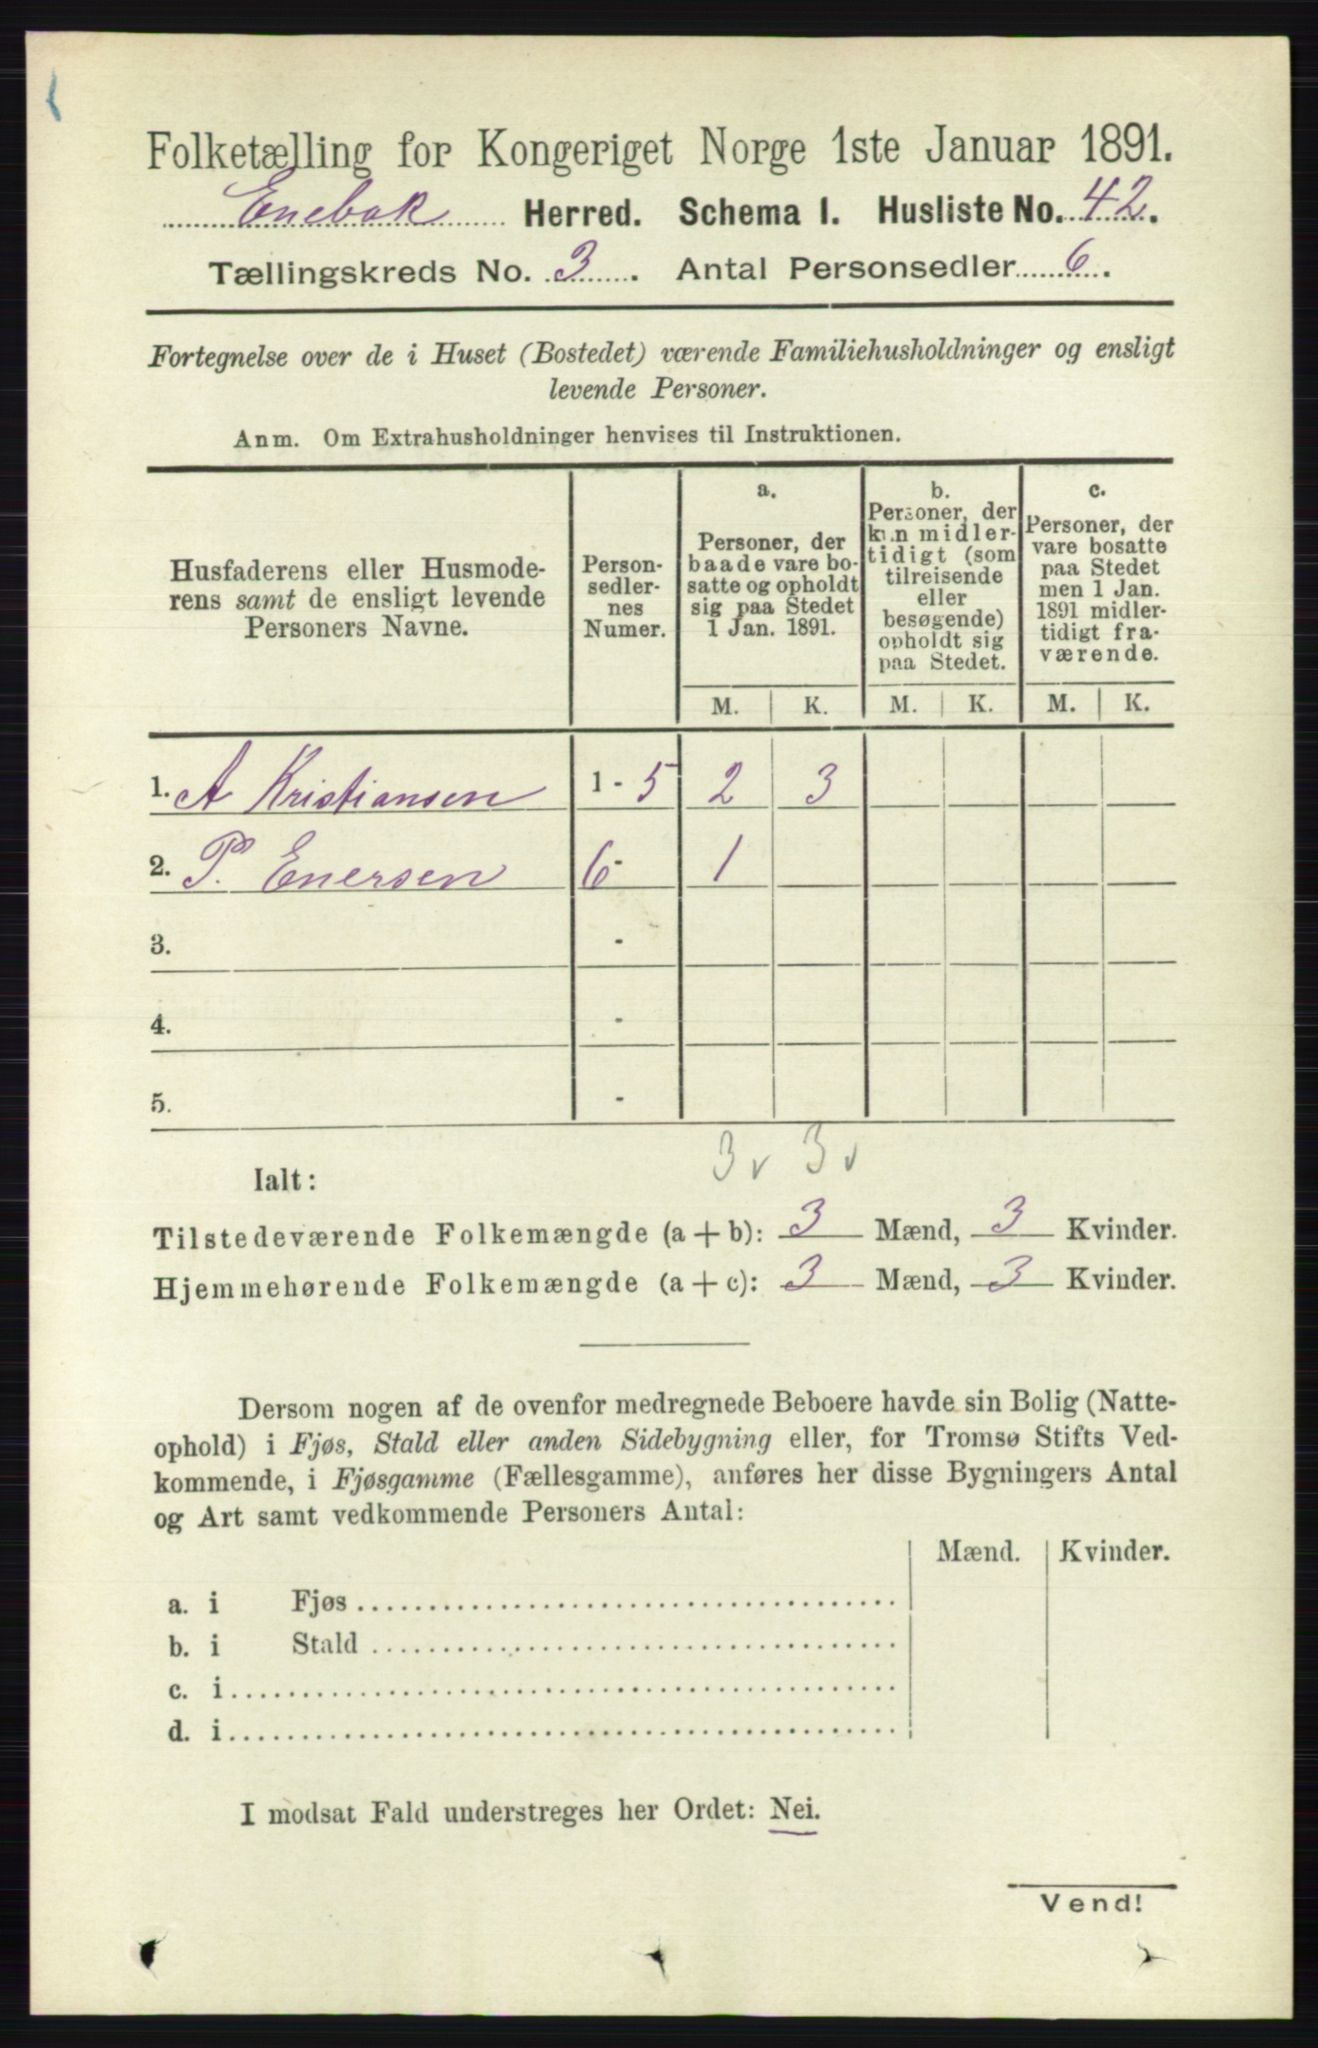 Folketælling for Kongeriget Norge 1ste Januar 1891.
Enebak Herred. Schema I. Husliste No. 42.
Tællingskreds No. 3. Antal Personsedler 6.
Fortegnelse over de i Huset (Bostedet) værende Familiehusholdninger og ensligt
levende Personer.
Anm. Om Extrahusholdninger henvises til Instruktionen.
Husfaderens eller Husmode-
rens samt de ensligt levende
Personers Navne.
Person-
sedler-
nes
Numer.
a.
Personer, der
baade vare bo-
satte og opholdt
sig paa Stedet
1 Jan. 1891.
b.
Personer, der
kun midler-
tidigt (som
tilreisende
eller
besøgende)
opholdt sig
paa Stedet.
c.
Personer, der
vare bosatte
paa Stedet
men 1 Jan.
1891 midler-
tidigt fra-
værende.
M. K. M. K. M. K.
1. A Kristiansen 1-5 2 3
2. P. Enersen 6- 1
3. -
4. -
5. -
3 v 3 v
Ialt:
Tilstedeværende Folkemængde (a + b): 3 Mænd, 3 Kvinder.
Hjemmehørende Folkemængde (a + c): 3 Mænd, 3 Kvinder.
Dersom nogen af de ovenfor medregnede Beboere havde sin Bolig (Natte-
ophold) i Fjøs, Stald eller anden Sidebygning eller, for Tromsø Stifts Ved-
kommende, i Fjøsgamme (Fællesgamme), anføres her disse Bygningers Antal
og Art samt vedkommende Personers Antal:
Mænd. Kvinder.
a. i Fjøs
b. i Stald
c. i
d. i
I modsat Fald understreges her Ordet: Nei.
Vend!